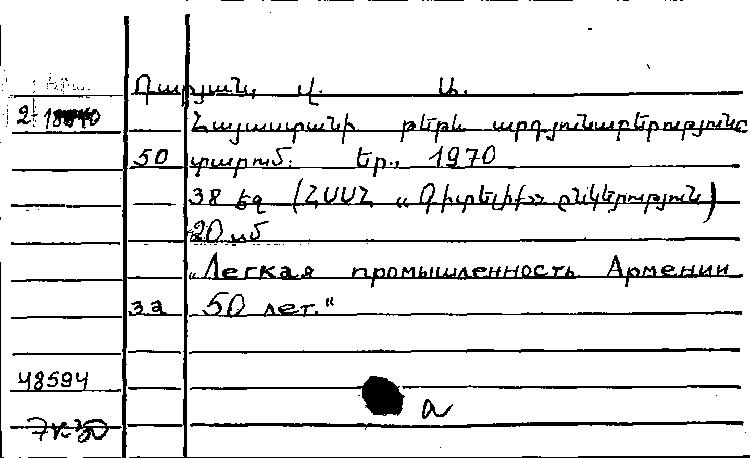 Ղարյան, Վ. Ա.
2-18
Հայաստանի թեթև արդյունաբերությունը
50 տարում. Եր., 1970
38 եզ (ՀՍՍՀ „Գիտելիք" ընկերություն)
20 սմ
„Легкая промышленность Армении
за 50 лет."
48594
a